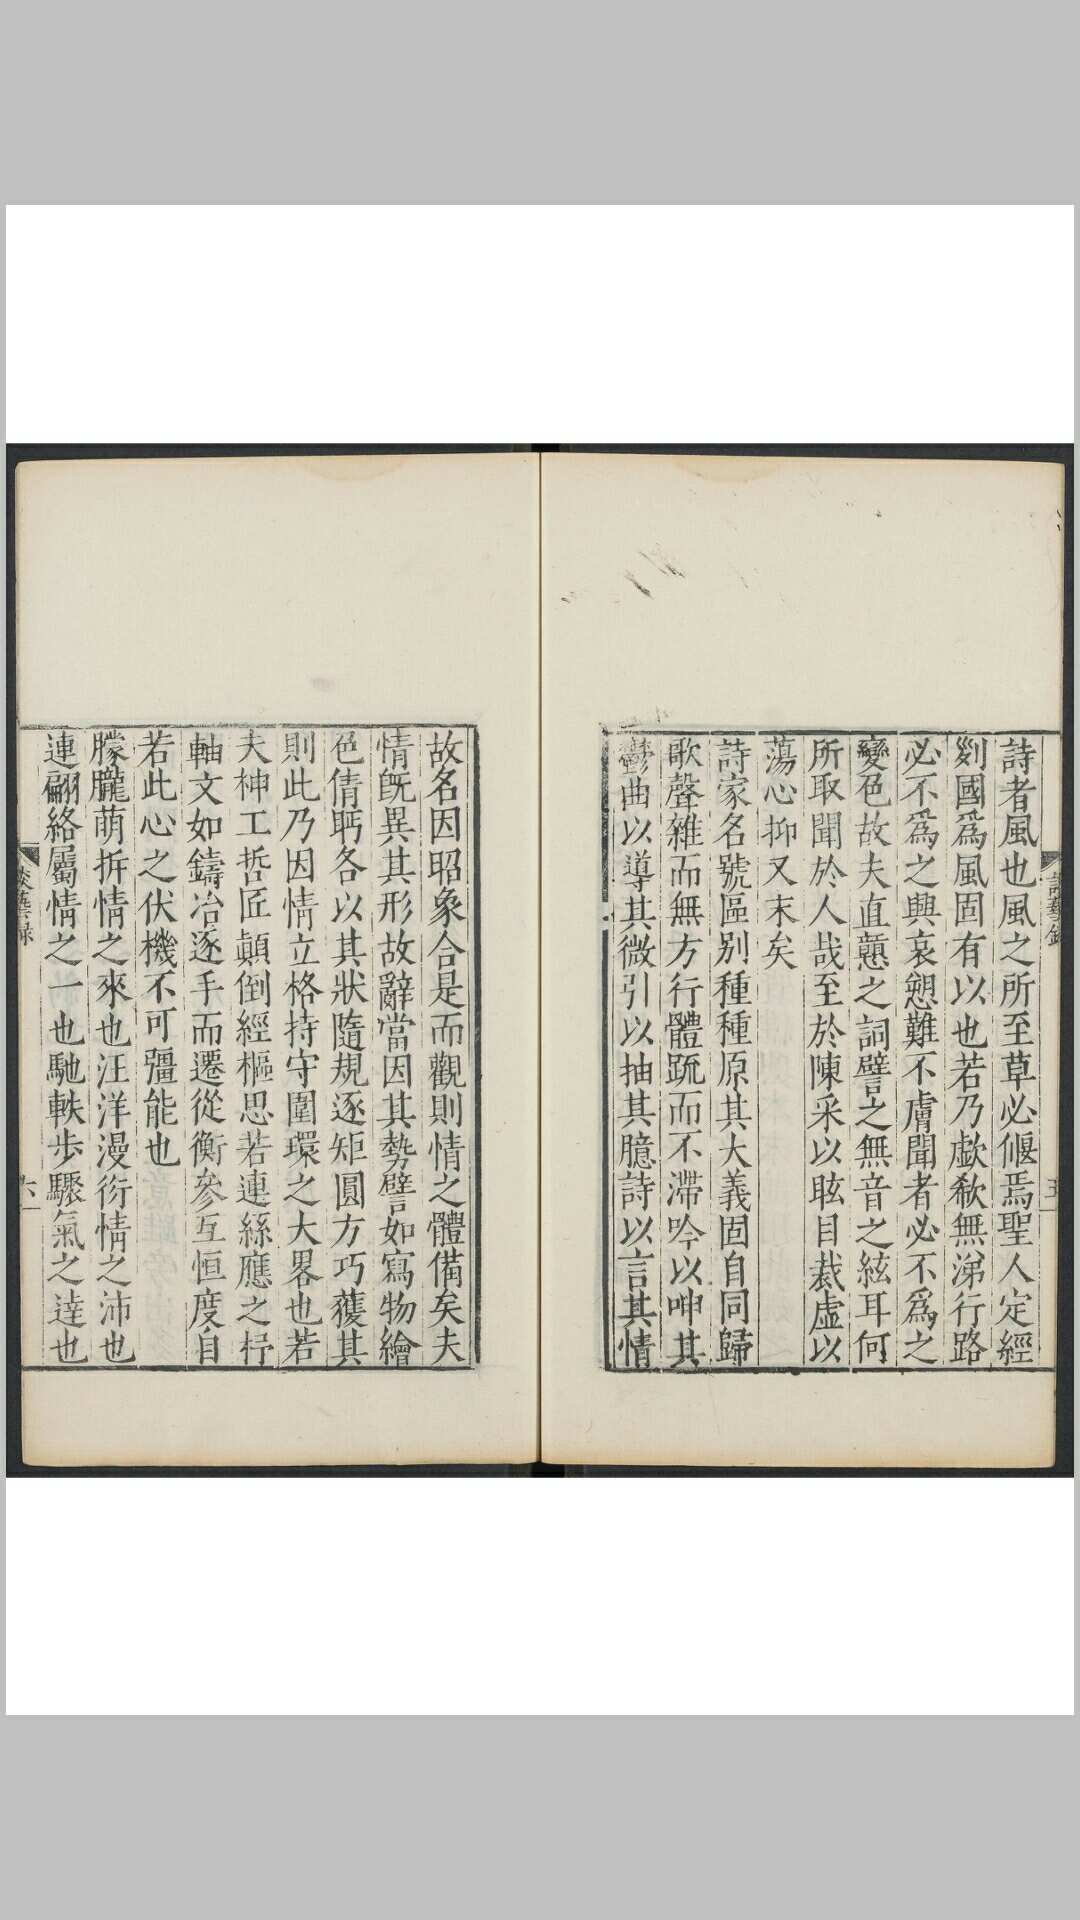 詩者風也風之所至草必偃焉聖人定經
列國爲風固有以也若乃歔欷無涕行路
必不爲之興哀愬難不膚聞者必不爲之
變色故夫直戇之詞譬之無音之絃耳何
所取聞於人哉至於陳采以眩目裁虛以
蕩心抑又末矣
詩家名號區别種種原其大義固自同歸
歌聲雜而無方行體疏而不滯吟以呻其
鬱曲以導其微引以抽其臆詩以言其情
故名因昭象合是而觀則情之體備矣夫
情旣異其形故辭當因其勢譬如寫物繪
色倩盻各以其狀隨規逐矩圓方巧獲其
則此乃因情立格持守圍環之大畧也若
夫神工哲匠顚倒經樞思若連絲應之杼
軸文如鑄冶逐手而遷從衡參互恒度自
若此心之伏機不可彊能也
朦朧萌拆情之來也汪洋漫衍情之沛也
連翩絡屬情之一也馳軼步驟氣之達也
談藝録
六